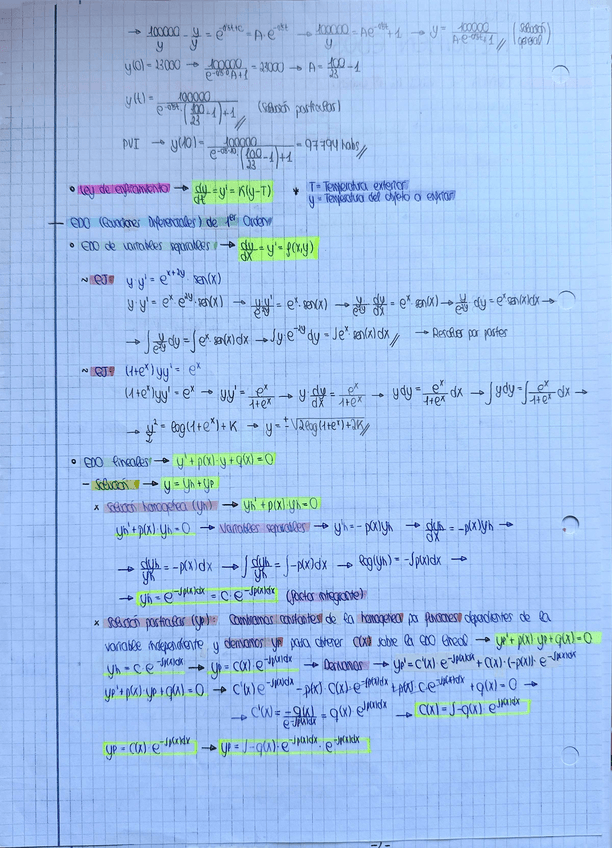 → 100000/y - y/y = e^(-0.5t+c) = A·e^(-0.5t) → 100000/y = Ae^(-0.5t)+1 → y = 100000/(A·e^(-0.5t)+1) // (solución general)
y(0)=23000 → 100000/(e^(-0.5·0)A+1) = 23000 → A = 100/23 - 1
y(t) = 100000/(e^(-0.5t)(100/23 - 1)+1) // (solución particular)
PVI → y(10) = 100000/(e^(-0.5·10)(100/23 - 1)+1) = 97794 habs //
• Ley de enfriamiento → dy/dt = y' = K(y-T) * T = Temperatura exterior
y = Temperatura del objeto a enfriar
— EDO (Ecuaciones Diferenciales) de 1er Orden
• EDO de variables separables → dy/dx = y' = f(x,y)
~ EJ: y y' = e^(x+2y) sen(x)
y·y' = e^x e^(2y)·sen(x) → y·y'/e^(2y) = e^x·sen(x) → y/e^(2y) dy/dx = e^x sen(x) → y/e^(2y) dy = e^x sen(x)dx →
→ ∫ y/e^(2y) dy = ∫ e^x sen(x)dx → ∫ y·e^(-2y) dy = ∫ e^x sen(x)dx // → Resolver por partes
~ EJ: (1+e^x) yy' = e^x
(1+e^x)yy' = e^x → yy' = e^x/(1+e^x) → y dy/dx = e^x/(1+e^x) → y dy = e^x/(1+e^x) dx → ∫ y dy = ∫ e^x/(1+e^x) dx →
→ y²/2 = log(1+e^x)+K → y = ±√(2log(1+e^x)+2K) //
• EDO lineales → y' + p(x)·y + q(x) = 0
– Solución → y = yh + yp
x Solución homogénea (yh) → yh' + p(x)·yh = 0
yh' + p(x)·yh = 0 → Variables separables → y'h = -p(x)yh → dyh/dx = -p(x)yh →
→ dyh/yh = -p(x)dx → ∫ dyh/yh = ∫ -p(x)dx → log(yh) = -∫p(x)dx →
→ yh = e^(-∫p(x)dx) = C·e^(-∫p(x)dx) (factor integrante)
x Solución particular (yp): Cambiamos constantes de la homogénea por funciones dependientes de la
variable independiente, y derivamos yp para obtener C(x) sobre la EDO lineal → yp' + p(x) yp + q(x) = 0
yh = c·e^(-∫p(x)dx) → yp = C(x)·e^(-∫p(x)dx) → Derivamos → yp' = C'(x) e^(-∫p(x)dx) + C(x)·(-p(x))·e^(-∫p(x)dx)
yp' + p(x) yp + q(x) = 0 → C'(x) e^(-∫p(x)dx) - p(x) C(x)·e^(-∫p(x)dx) + p(x) C·e^(-∫p(x)dx) + q(x) = 0 →
→ C'(x) = -q(x)/e^(-∫p(x)dx) = q(x)·e^(∫p(x)dx) → C(x) = ∫-q(x)·e^(∫p(x)dx)
yp = C(x)·e^(-∫p(x)dx) → yp = ∫-q(x)·e^(-∫p(x)dx)·e^(-∫p(x)dx)